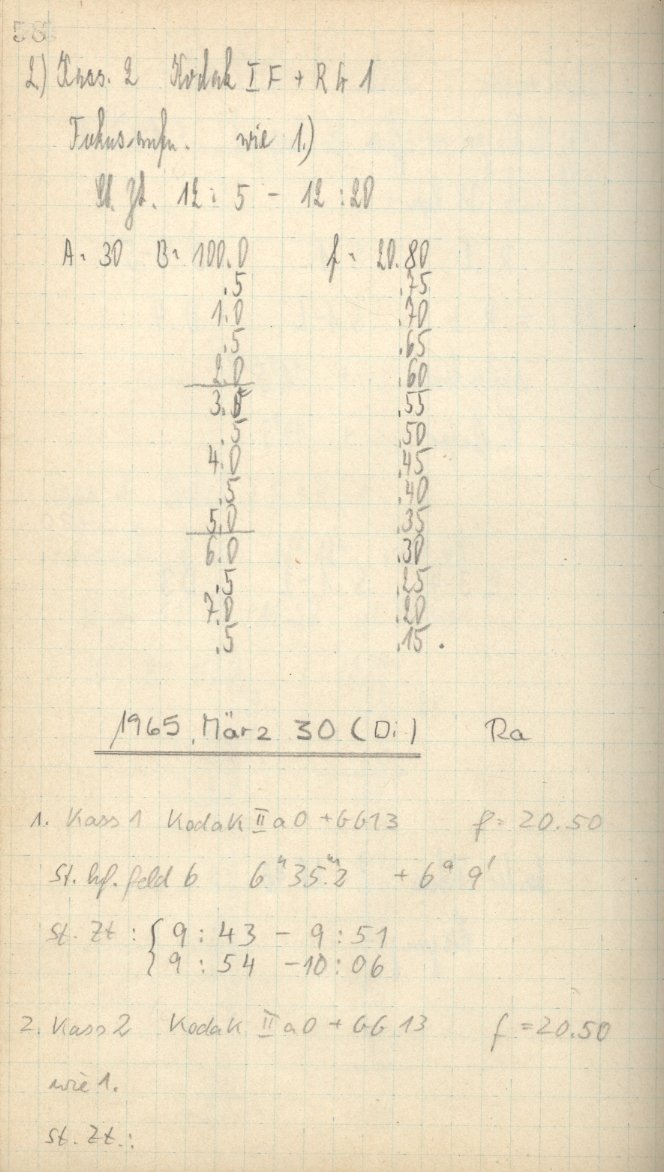 58
2) Kass. 2 Kodak I F + RG 1
Fokusaufn. wie 1.)
St. Zt. 12 : 5 - 12 : 20
A = 30 B = 100.0 f = 20.80
.5 .75
1.0 .70
.5 .65
2.0 .60
3.0 .55
.5 .50
4.0 .45
.5 .40
5.0 .35
6.0 .30
.5 .25
7.0 .20
.5 .15 .
1965, März 30 (Di) Ra
1. Kass 1 Kodak II a O + GG13 f = 20.50
St. hf. feld 6 6ʰ 35ᵐ.2 + 6° 9'
St. Zt : { 9 : 43 - 9 : 51
9 : 54 - 10 : 06
2. Kass 2 Kodak II a O + GG 13 f = 20.50
wie 1.
St. Zt. :